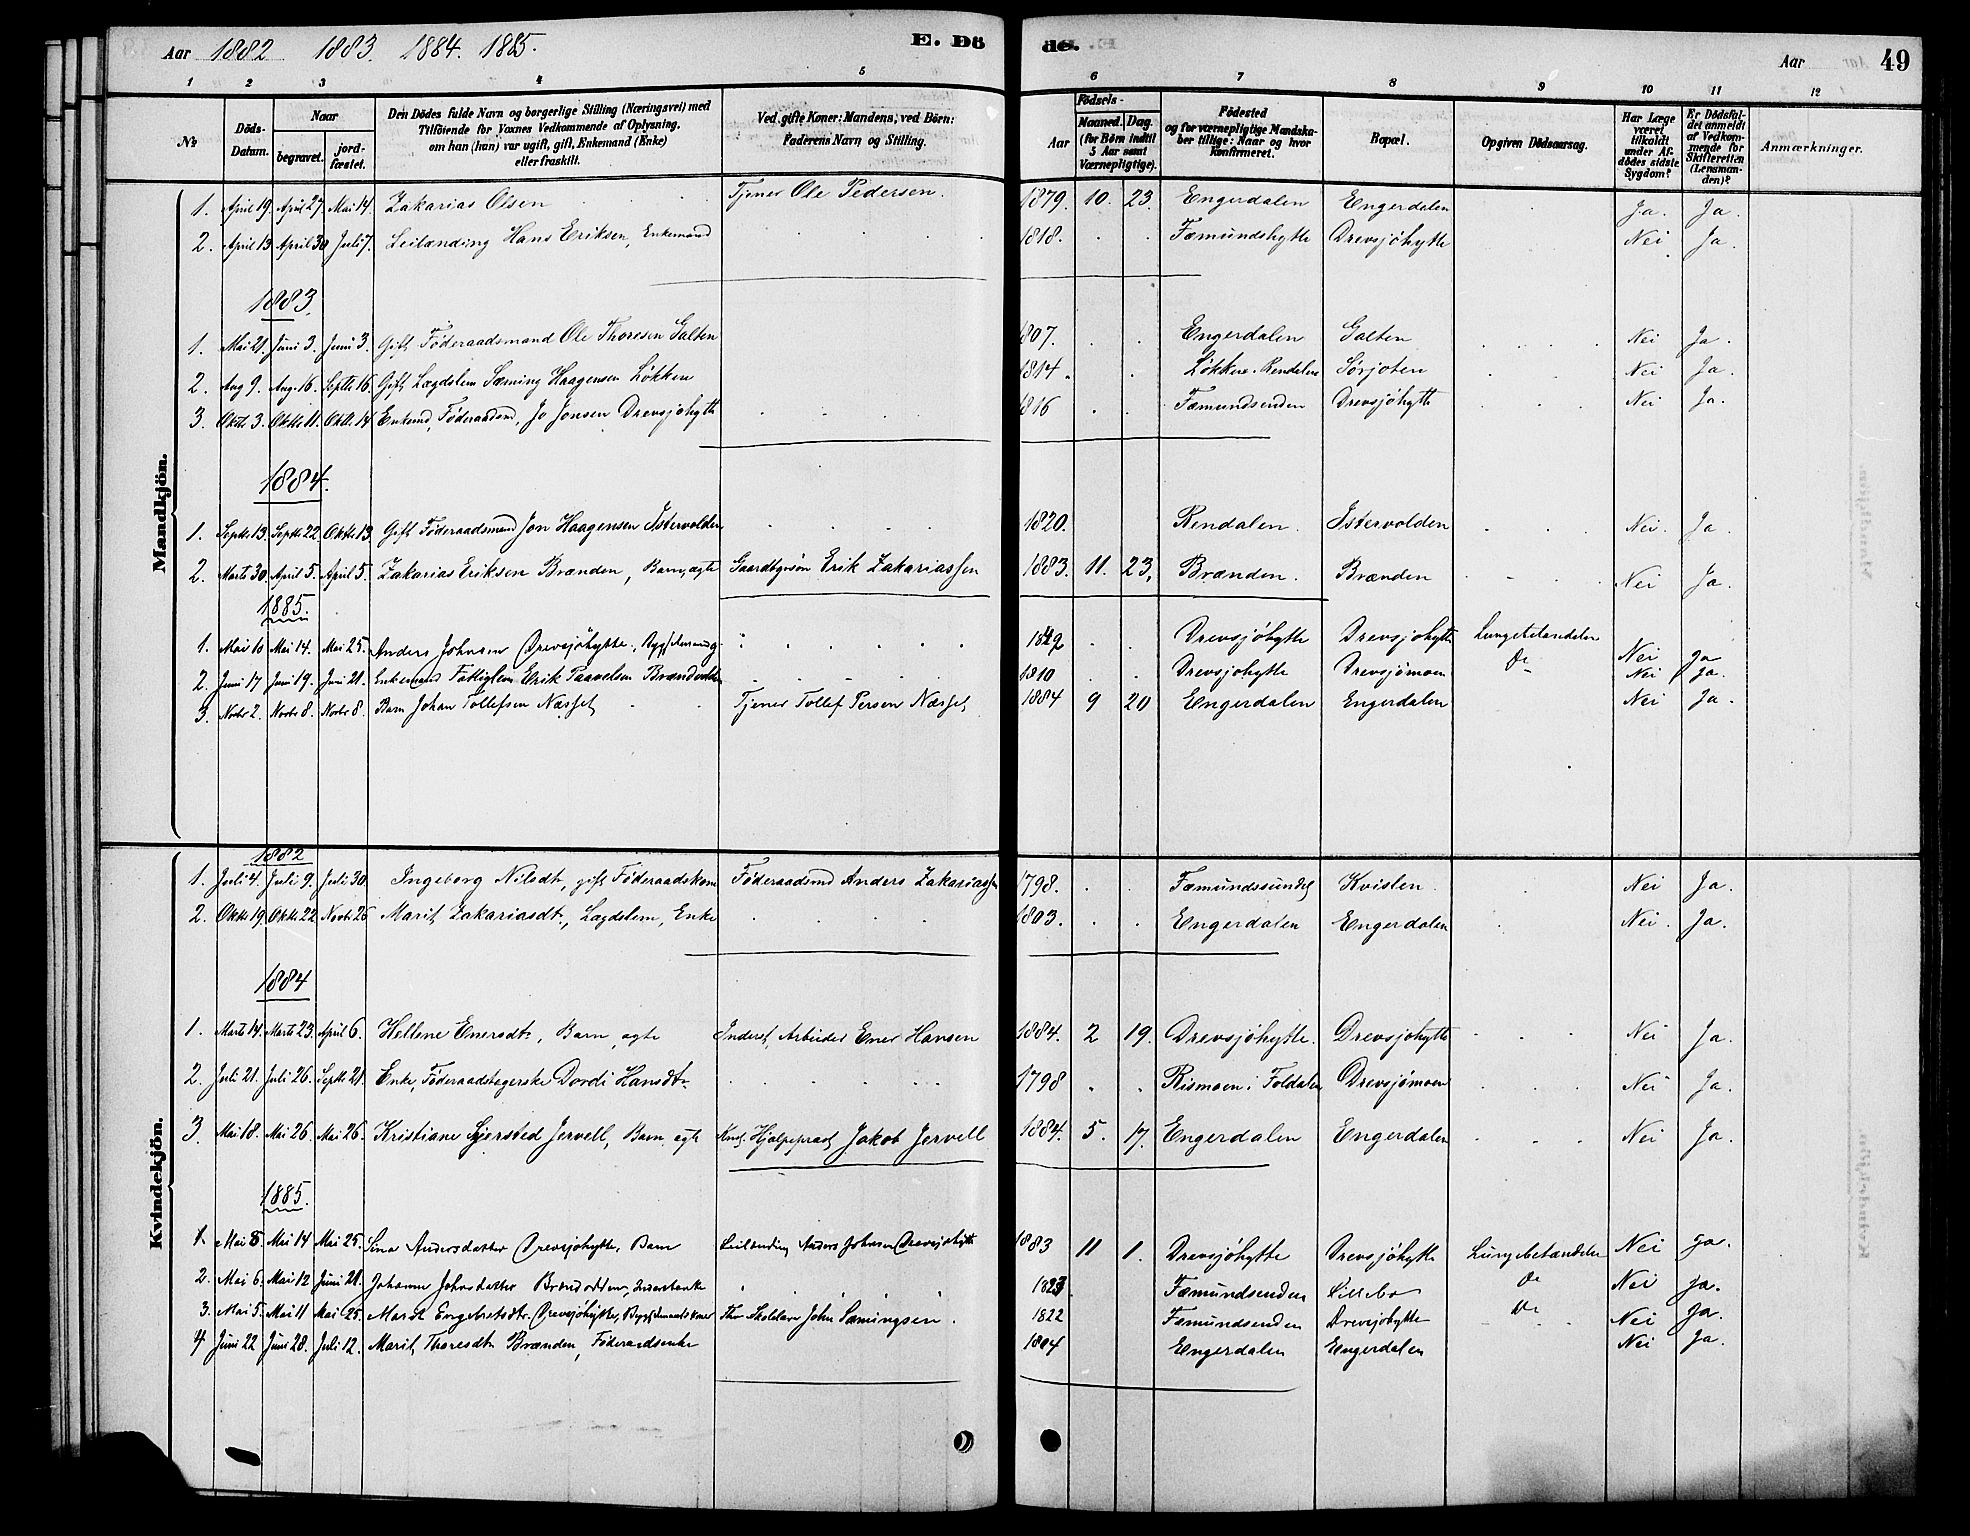 Aar 1882 1883. 1884. 1885. E. Dö de. Aar 49
1 2 3 4 5 6 7 8 9 10 11 12
No. Döds-Datum. Naar begravet. jordfæstet. Den Dödes fulde Navn og borgerlige Stilling (Næringsvei) med Tilföiende for Voxnes Vedkommende af Oplysning, om han (hun) var ugift, gift, Enkemand (Enke) eller fraskilt. Ved gifte Koner: Mandens; ved Börn: Faderens Navn og Stilling. Födsels- Aar Maaned. Dag. (for Börn indtil 5 Aar samt Værnepligtige). Födested og for værnepligtige Mandskaber tillige: Naar og hvor konfirmeret. Bopæl. Opgiven Dödsaarsag. Har Læge været tilkaldt under Afdödes sidste Sygdom? Er Dödsfaldet anmeldt af Vedkommende for Skifteretten (Lensmanden)? Anmærkninger.
Mandkjön.
1. April 19. April 27. Mai 14. Zakarias Olsen Tjener Ole Pedersen. 1879. 10. 23. Engerdalen Engerdalen Ja. Ja.
2. April 13 April 30 Juli 7. Leilænding Hans Eriksen, Enkemand 1818. Fæmundshytte Drevsjöhytte Nei Ja.
1883.
1. Mai 21. Juni 3. Juni 3. Gift Föderaadsmand Ole Thoresen Galten 1807. Engerdalen Galten Nei Ja.
2. Aug 9. Aug. 16. Septbr 16. Gift Lægdslem Sæming Haagensen Løkken 1814. Løkken i Rendalen Sörjoten Nei Ja.
3. Oktbr 3. Oktbr 11. Oktbr 14 Enkemd, Föderaadsmd, Jo Jonsen Drevsjöhytte 1816 Fæmundsenden Drevsjöhytte Nei Ja.
1884.
1. Septbr 13. Septbr 22. Oktbr 13. Gift Föderaadsmand Jon Haagensen Istervolden 1820. Rendalen. Istervolden Nei. Ja
2. Marts 30. April 5. April 5. Zakarias Eriksen Brænden, Barn, ægte Gaardbrgsön Erik Zakariassen 1883. 11. 23, Brænden. Brænden Nei Ja.
1885.
1. Mai 10 Mai 14. Mai 25. Anders Johnsen Drevsjöhytte, Drevsjöhytte Drevsjöhytte Lungebetændelse Nei Ja
2. Juni 17 Juni 19. Juni 21. Enkemand Fattiglem Erik Paavelsen Brændvolden 1810 Drevsjöhytte Drevsjömoen Do Nei Ja.
3. Novbr 2. Novbr 8. Novbr 8. Barn Johan Tollefsen Næsset Tjener Tollef Persen Næsset 1884 9 20 Engerdalen Engerdalen Nei Ja.
Kvindekjön.
1882
1. Juli 4. Juli 9. Juli 30 Ingeborg Nilsdtr, gift Föderaadskone Föderaadsmd Anders Zakariassen 1798. Fæmundssundet Kvislen. Nei Ja.
2. Oktbr 19. Oktbr 22 Novbr 26 Marit Zakariasdtr., Lægdslem, Enke 1803. Engerdalen Engerdalen Nei. Ja.
1884
1. Marts 14. Marts 23. April 6. Hellene Enersdtr, Barn, ægte Inderst, Arbeider Ener Hansen 1884. 2 19. Drevsjöhytte. Drevsjöhytte Nei Ja.
2. Juli 21. Juli 26. Septbr 21. Enke, Föderaadstagerske Dordi Hansdtr 1798 Rismoen i Foldalen Drevsjömoen Nei Ja.
3. Mai 18. Mai 26. Mai 26. Kristiane Jersted Jervell, Barn, ægte Hjælpeprest Jakob Jervell 1884. 5. 17. Engerdalen Engerdalen Nei Ja.
1885.
1. Mai 8. Mai 14 Mai 25. Sina Andersdatter Drevsjöhytte, Barn Leilænding Anders Johnsen Drevsjöhytte 1883 11 1. Drevsjöhytte Drevsjöhytte Lungebetændelse Nei Ja.
2. Mai 6. Mai 12 Juni 21. Johanne Johnsdatter Fæmundsenden Lillebo Do Nei Ja.
3. Mai 5. Mai 11 Mai 25. Marit Engebretsdtr. Drevsjöhytte, John Sæmingsen. 1822 Fæmundsenden Drevsjöhytte Do Nei Ja.
4 Juni 22 Juni 28. Juli 12. Marit Thoresdtr Brænden, Föderaadsenke 1804 Engerdalen Engerdalen Nei Ja.